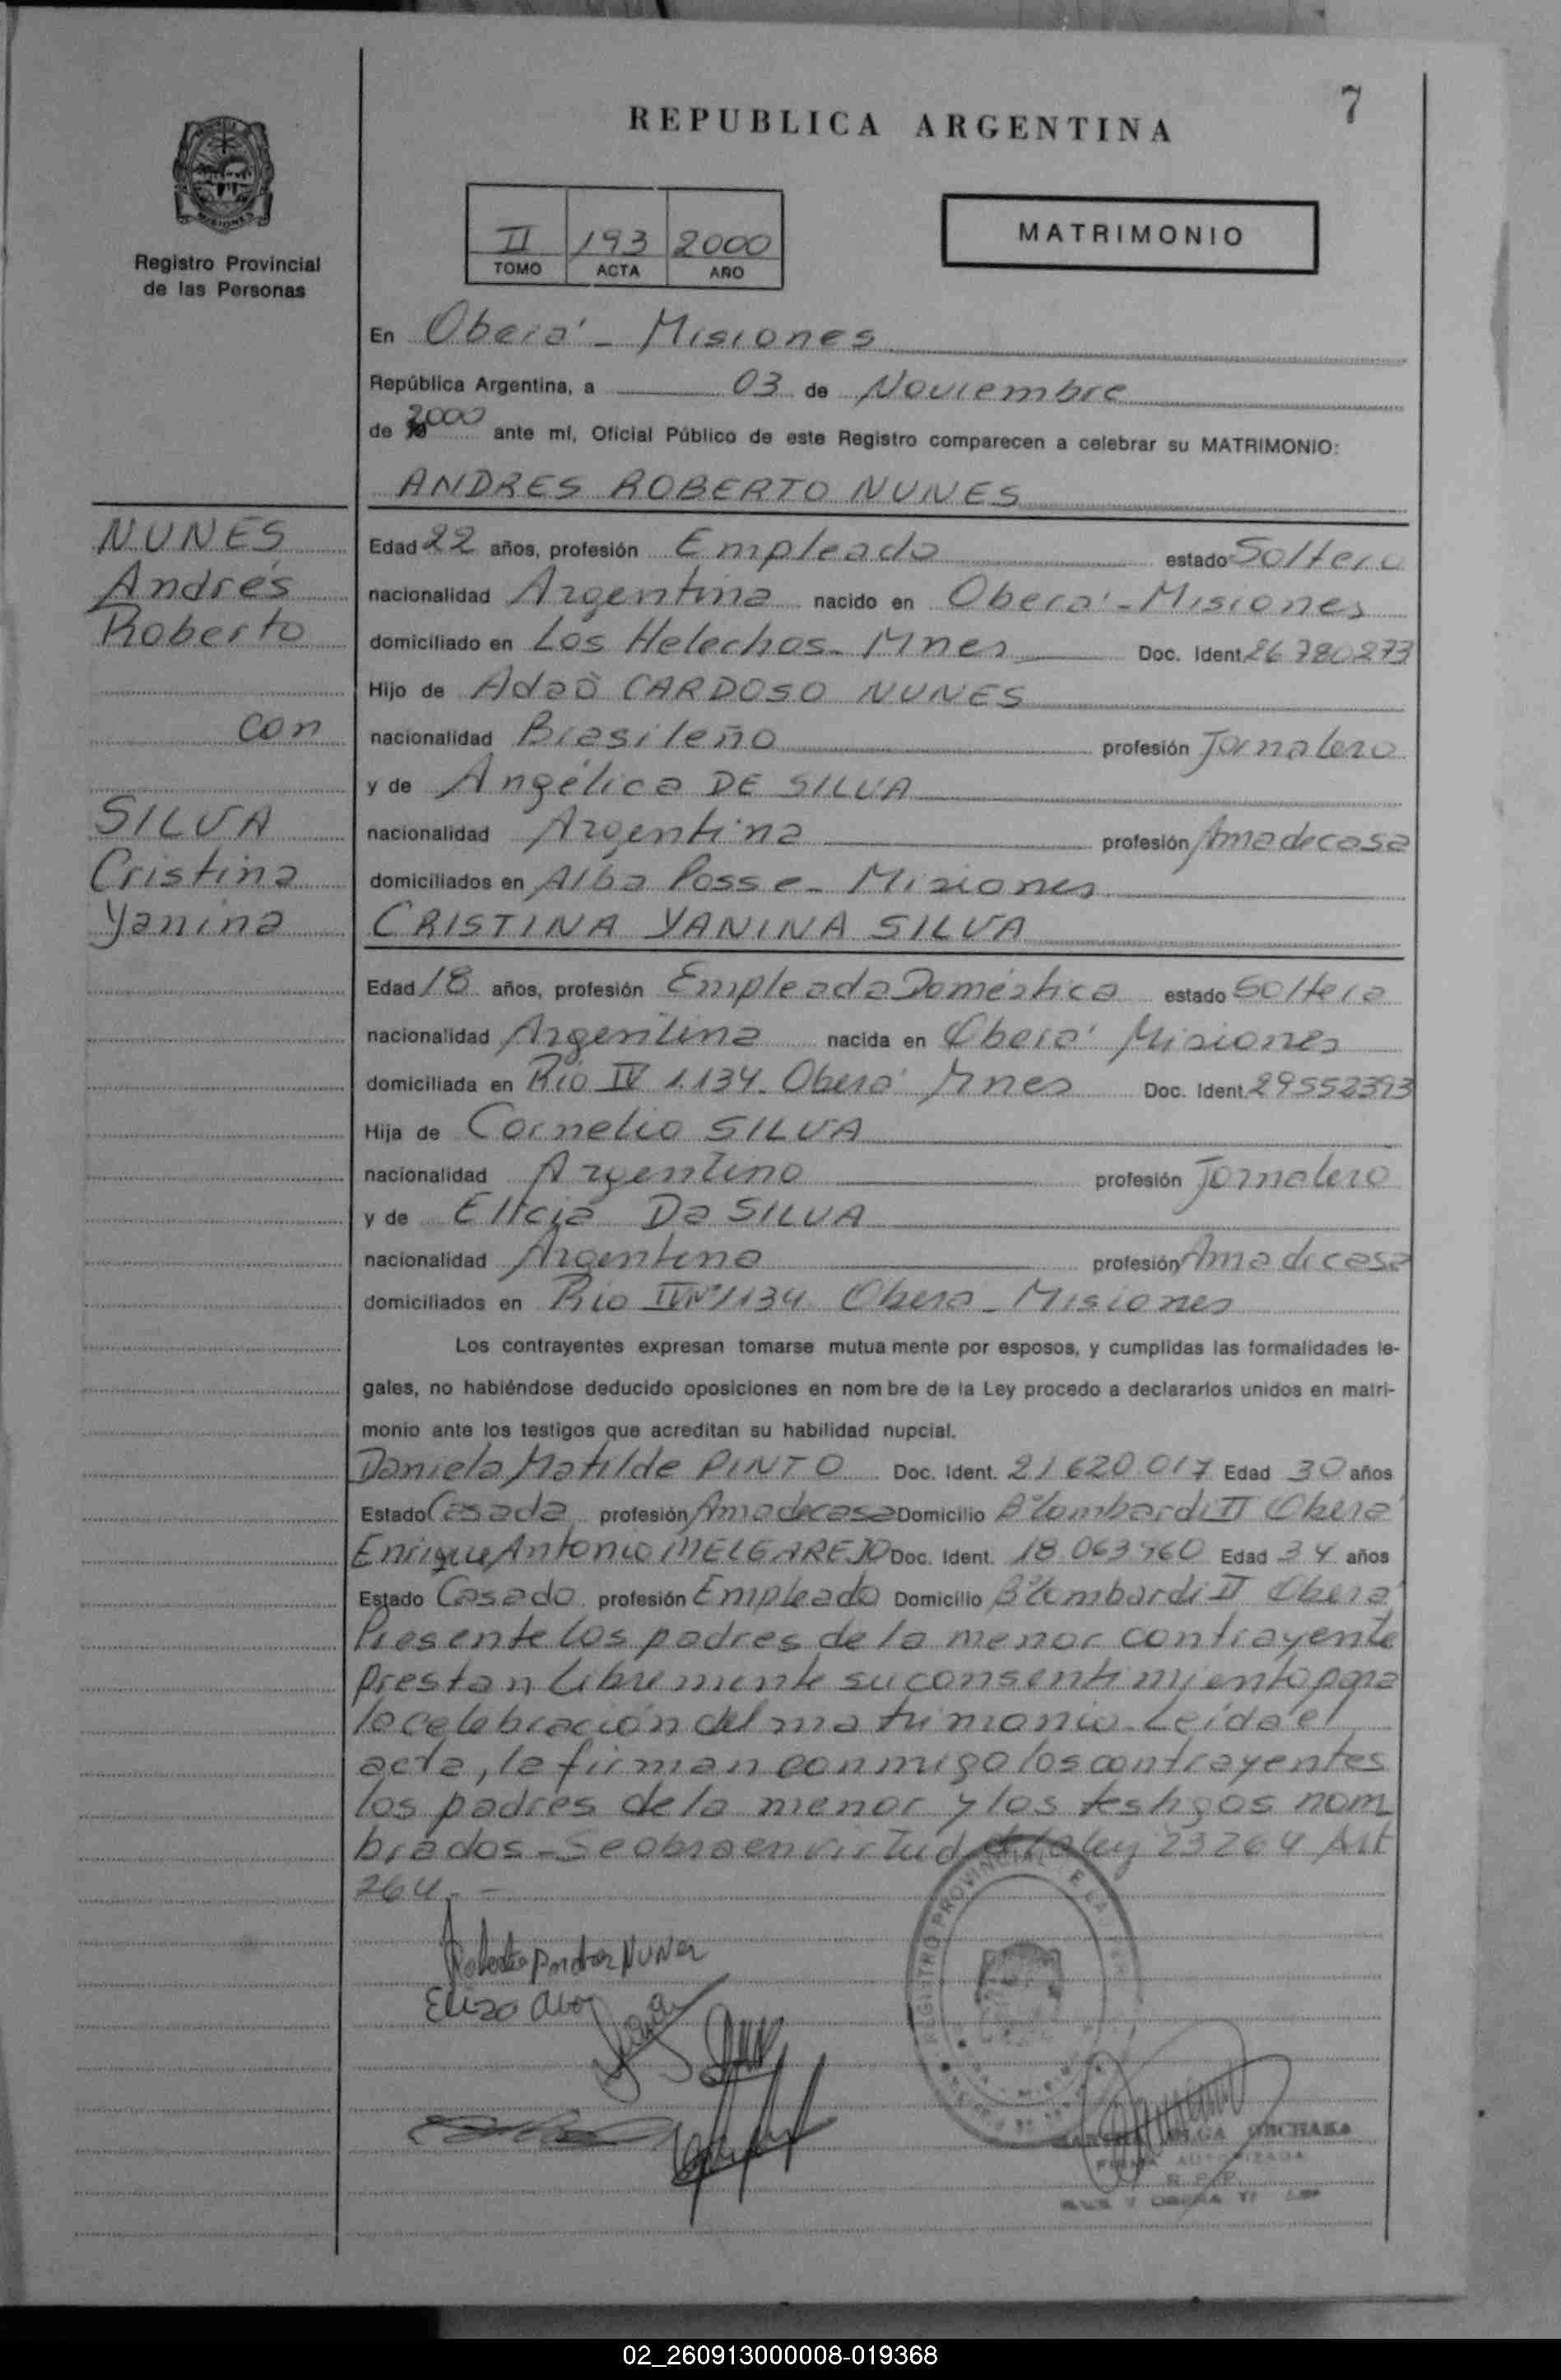 REPUBLICA ARGENTINA
7
MISIONES
Registro Provincial
de las Personas
II 193 2000
TOMO ACTA AÑO
MATRIMONIO
En Oberá - Misiones
República Argentina, a 03 de Noviembre
de 2000 ante mí, Oficial Público de este Registro comparecen a celebrar su MATRIMONIO:
ANDRES ROBERTO NUNES
NUNES
Andrés
Roberto
con
SILVA
Cristina
Yanina
Edad 22 años, profesión Empleado estado Soltero
nacionalidad Argentina nacido en Oberá - Misiones
domiciliado en Los Helechos - Mnes Doc. Ident. 26 780 273
Hijo de Adaõ CARDOSO NUNES
nacionalidad Brasileño profesión Jornalero
y de Angélica DE SILVA
nacionalidad Argentina profesión Ama de casa
domiciliados en Alba Posse - Misiones
CRISTINA YANINA SILVA
Edad 18 años, profesión Empleada Doméstica estado Soltera
nacionalidad Argentina nacida en Oberá Misiones
domiciliada en Rio IV 1.134 - Oberá Mnes Doc. Ident. 29552393
Hija de Cornelio SILVA
nacionalidad Argentino profesión Jornalero
y de Da SILVA
nacionalidad Argentina profesión Ama de casa
domiciliados en Rio IV Nº 1134 Oberá - Misiones
Los contrayentes expresan tomarse mutua mente por esposos, y cumplidas las formalidades le-
gales, no habiéndose deducido oposiciones en nom bre de la Ley procedo a declararlos unidos en matri-
monio ante los testigos que acreditan su habilidad nupcial.
Daniela Matilde PINTO Doc. Ident. 21 620 017 Edad 30 años
Estado Casada profesión Ama de casa Domicilio Bº Lombardi II Oberá
Enrique Antonio MELGAREJO Doc. Ident. 18 063 960 Edad 34 años
Estado Casado profesión Empleado Domicilio Bº Lombardi II Oberá
Presente los padres de la menor contrayente
prestan libremente su consentimiento para
la celebración del matrimonio. Leída el
acta, la firman conmigo los contrayentes
los padres de la menor y los testigos nom
brados - Se obra en virtud de la ley 23264 Art
264. -
NUNES
REGISTRO PROVINCIAL DE LAS
OLGA
FIRMA AUTORIZADA
R. P. P.
02_260913000008-019368